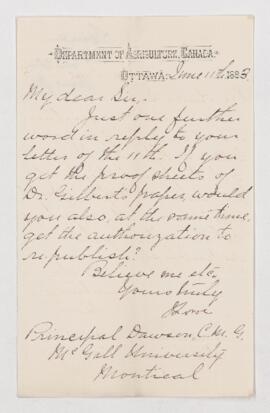 DEPARTMENT OF AGRICULTURE, CANADA.
OTTAWA: June 11th 1883
My dear Sir,
Just one further
word in reply to your
letter of the 11th. If you
get the proof sheets of
Dr. Gilbert's paper, would
you also, at the same time,
get the authorization to
republish?
Believe me etc.
Yours truly
J Lowe
Principal Dawson, C.M.G.
McGill University
Montreal